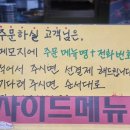 주문하실 고객님은,
메모지에 주문 메뉴명+전화번호
적어서 주시면 선결제 해드립니다
기다려 주시면 순서대로
사이드메뉴